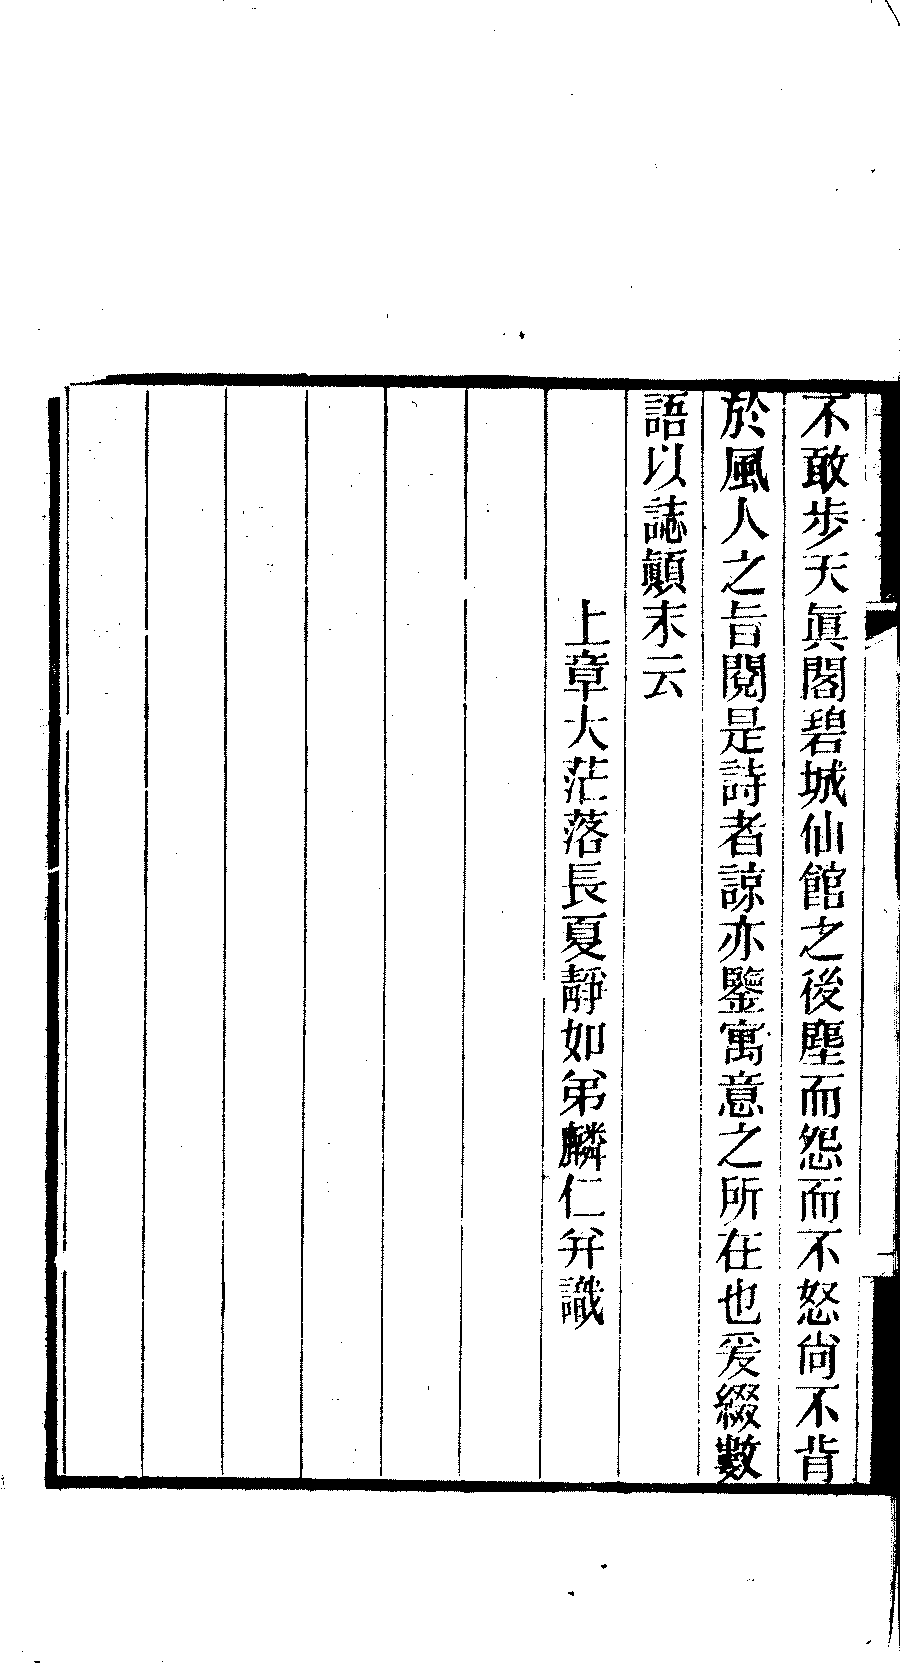 不敢步天眞閣碧城仙館之後塵而怨而不怒尙不背
於風人之旨閱是詩者諒亦鑒寓意之所在也爰綴數
語以誌顚末云
上章大茫落長夏靜如弟麟仁弁識